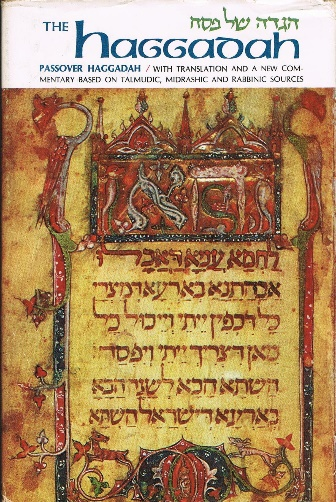 הגדה של פסח
THE haggadah
PASSOVER HAGGADAH / WITH TRANSLATION AND A NEW COM-
MENTARY BASED ON TALMUDIC, MIDRASHIC AND RABBINIC SOURCES
הא
לחמא עניא דאכלו
אבהתנא בארעא דמצרי
כל דכפין ייתי וייכול כל
מאן דצריך ייתי ויפסח
השתא הכא לשנה הבא
בארעא דישראל השתא